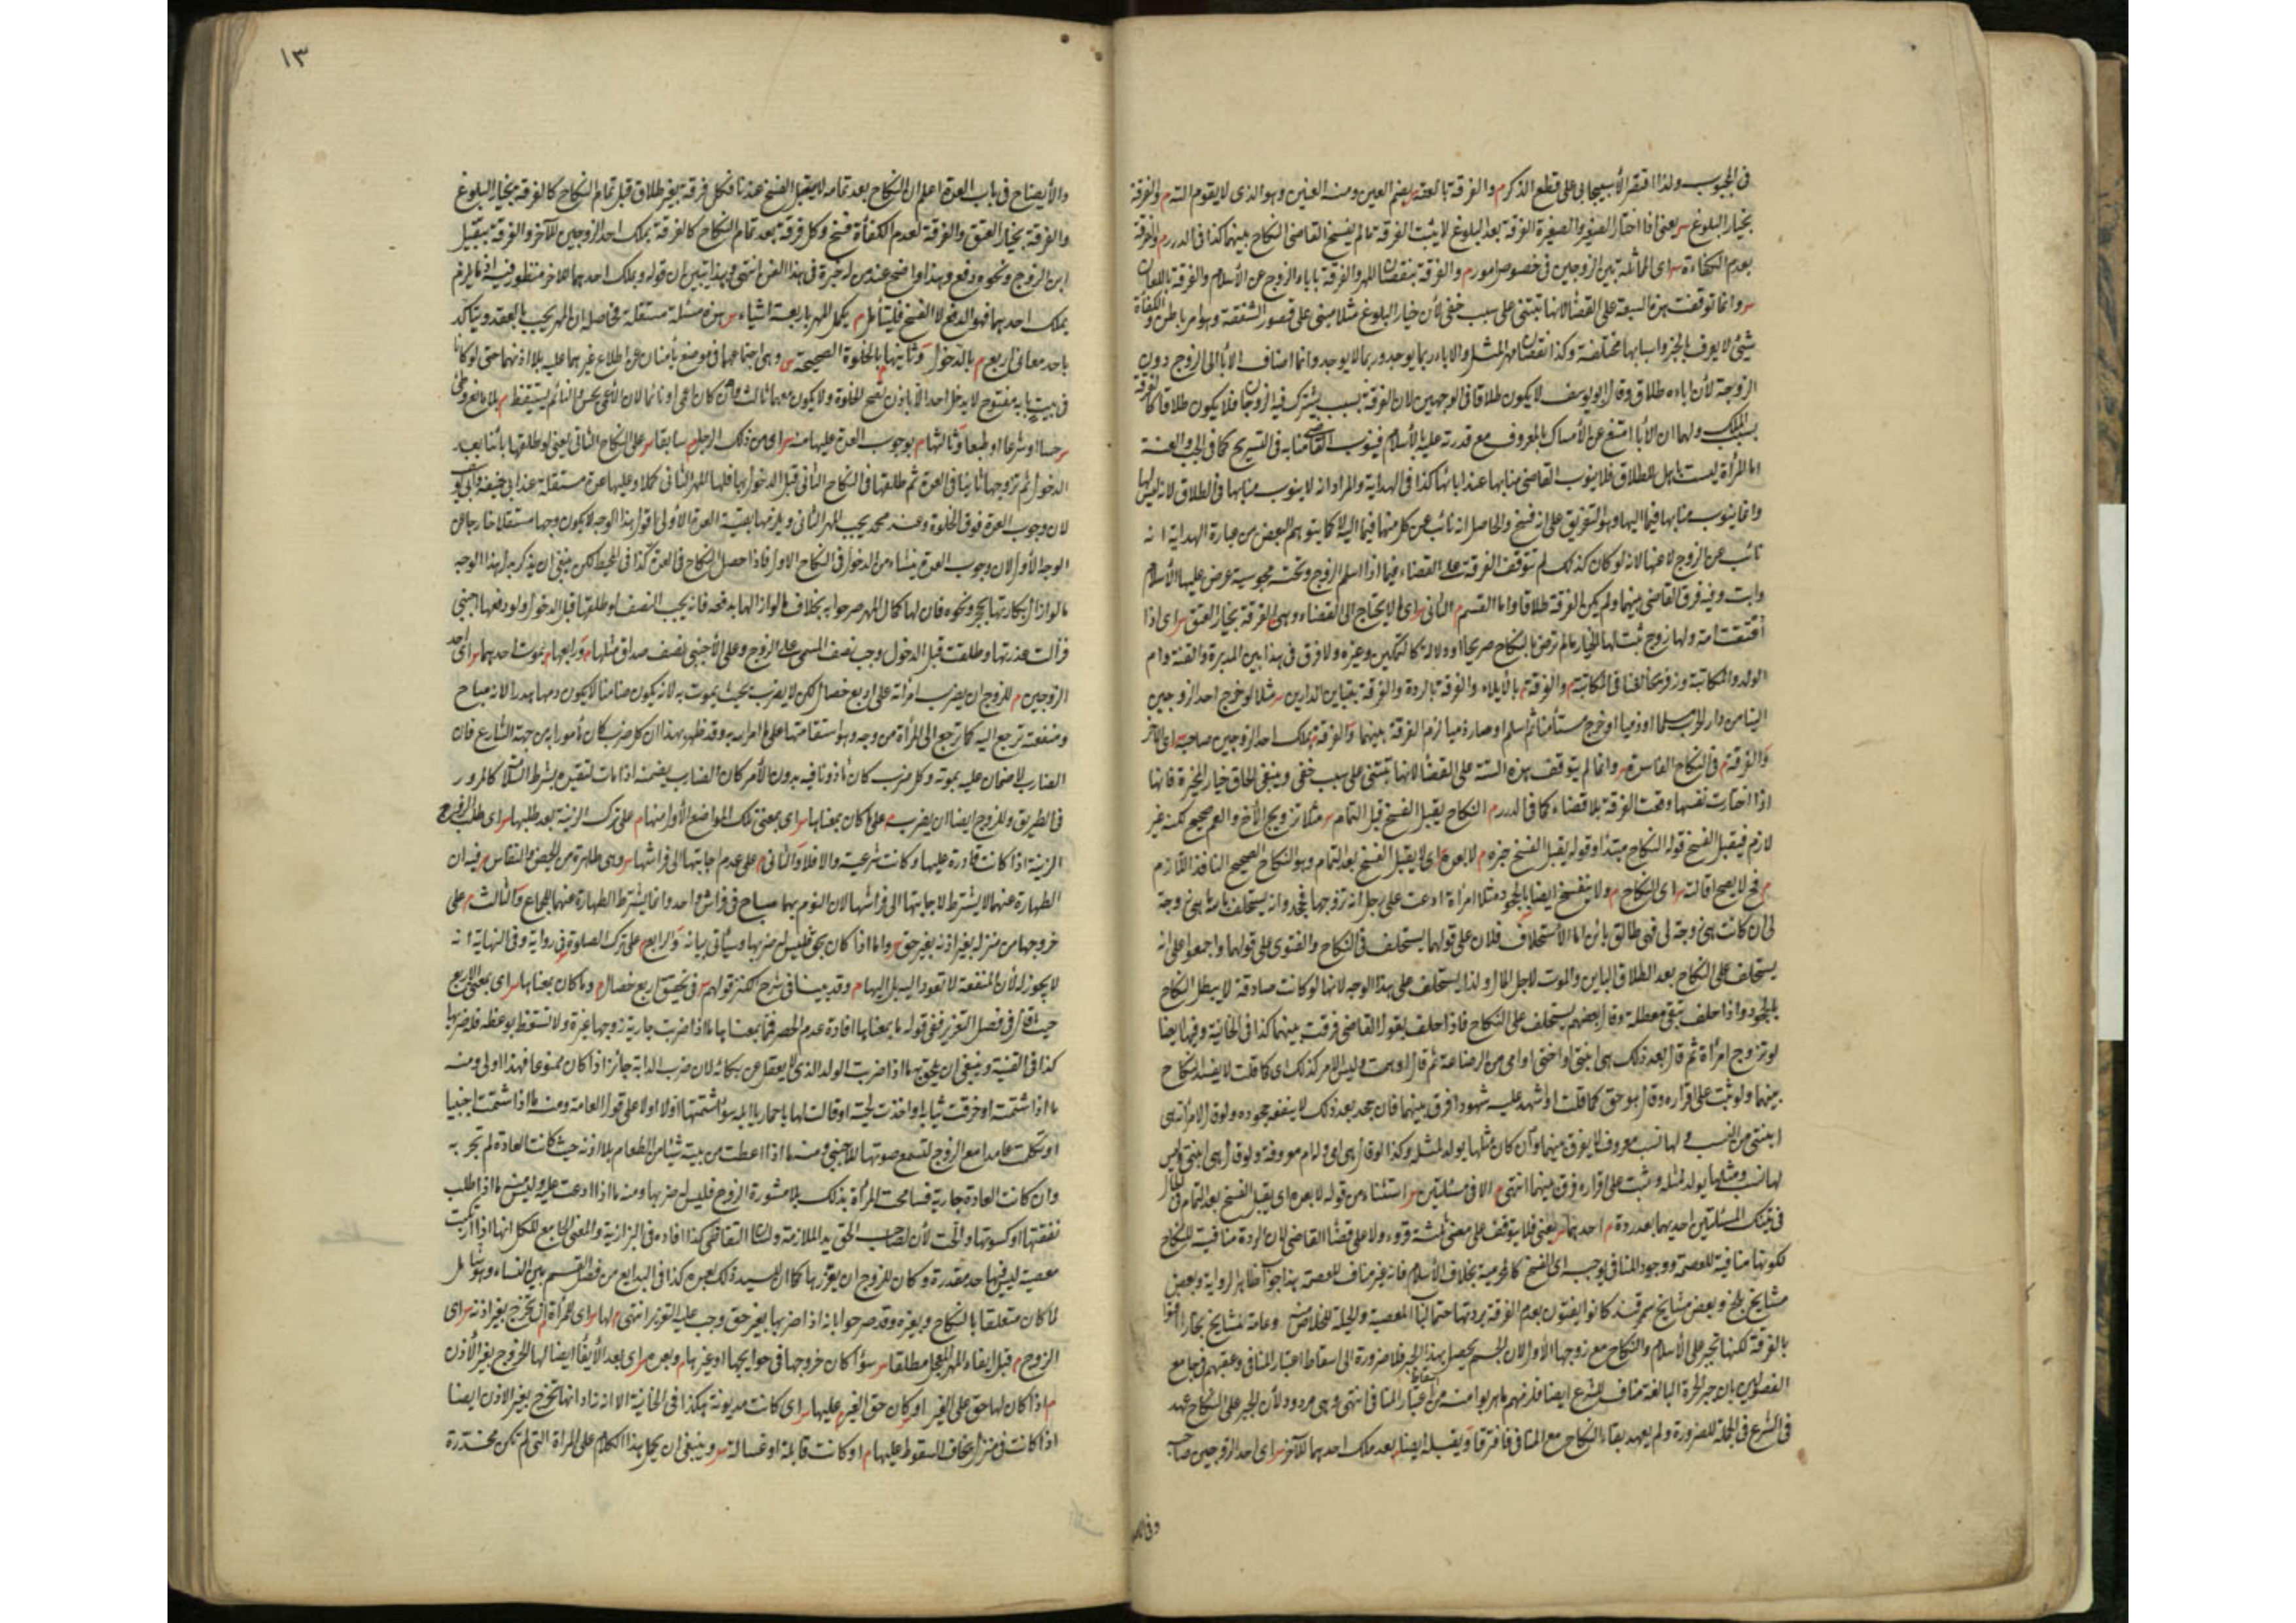 في المجبوب ولذا اقتصر الأسبيجابي على قطع الذكر م والفرقة بالعنة بضم العين ومنه العنين وهو الذي لا يقوم التة م والفرقة
بخيار البلوغ س يعني اذا اختار الصغير والصغيرة الفرقة بعد البلوغ لا يثبت الفرقة ما لم يفسخ القاضي النكاح بينهما كذا في الدرر م والفرقة
بعدم الكفاءة س اى المماثلة بين الزوجين في خصوص امور م والفرقة بنقصان المهر والفرقة باباء الزوج عن الأسلام والفرقة باللعان
س وانما توقفت هذه السبعة على القضاء لانها تبتنى على سبب خفي لأن خيار البلوغ مثلا مبني على قصور الشفقة وهو امر باطن والكفاءة
شئ لا يعرف بالحس واسبابها مختلفة وكذا نقصان مهر المثل والاباء ربما يوجد وربما لا يوجد وانما اضاف الأباء الى الزوج دون
الزوجة لأن اباءه طلاق وقال ابو يوسف لا يكون طلاقا في الوجهين لان الفرقة بسبب يشترك فيه الزوجان فلا يكون طلاقا كالفرقة
بسبب الملك ولهما ان الأباء امتنع عن الأمساك بالمعروف مع قدرته عليه بالأسلام فينوب القاضي منابه في التسريح كما في الجب والعنة
اما المرأة ليست باهل للطلاق فلا ينوب القاضي منابها عند ابائها كذا في الهداية والمراد انه لا ينوب منابها في الطلاق لانه ليس اليها
وانما ينوب منابها فيما اليها وهو التفريق على انه فسخ والحاصل انه نائب عن كل منهما فيما اليه لا كما يتوهم البعض من عبارة الهداية انه
نائب عن الزوج لا عنها لانه لو كان كذلك لم تتوقف الفرقة على القضاء فيما اذا اسلم الزوج وتحته مجوسية عرض عليها الأسلام
وابت وفيه فرق القاضي بينهما ولم يكن الفرقة طلاقا واما القسم م الثاني س اى ما لا يحتاج الى القضاء وهي م الفرقة بخيار العتق س اى اذا
اعتقت امة ولها زوج ثبت لها الخيار ما لم ترض بالنكاح صريحا او دلالة كالتمكين وغيره ولا فرق في هذا بين المدبرة والقنة وام
الولد والمكاتبة وزفر يخالفنا في المكاتبة م والفرقة م بالأيلاء والفرقة بالردة والفرقة بتباين الدارين س مثلا لو خرج احد الزوجين
الينا من دار الحرب مسلما او ذميا او خرج مستأمنا ثم اسلم او صار ذميا لزم الفرقة بينهما والفرقة بملك احد الزوجين صاحبه اى الاخر
والفرقة م في النكاح الفاسد س وانما لم يتوقف هذه الستة على القضاء لانها تبتنى على سبب خفي وينبغي الحاق خيار المخيرة فانها
اذا اختارت نفسها وقعت الفرقة بلا قضاء كما في الدرر م النكاح يقبل الفسخ قبل التمام س مثلا تزويج الأخ والعم صحيح لكنه غير
لازم فيقبل الفسخ قوله النكاح مبتدأ وقوله يقبل الفسخ خبره م لا بعده س اى لا يقبل الفسخ بعد التمام وهو النكاح الصحيح النافذ اللازم
م فلا يصح اقالته س اى النكاح م ولا ينفسخ ايضا بالجحود مثلا امرأة ادعت على رجل انه تزوجها فجحد وانه يستحلف بالله ما هي زوجة
لي ان كانت هي زوجة لي فهي طالق بائن اما الأستحلاف فلان على قولهما يستحلف في النكاح والفتوى على قولهما واجمعوا على انه
يستحلف على النكاح بعد الطلاق البائن والموت لاجل المال ولذا يستحلف على هذا الوجه لانها لو كانت صادقة لا يبطل النكاح
بالجحود واذا حلف تبقى معطلة وقال بعضهم يستحلف على النكاح فاذا حلف يقول القاضي فرقت بينهما كذا في الخانية وفيها ايضا
لو تزوج امرأة ثم قال بعد ذلك هي ابنتي او اختي او امي من الرضاعة ثم قال اوهمت وليس الامر كذلك اى كما قلت لا يفسد النكاح
بينهما ولو ثبت على اقراره وقال هو حق كما قلت او اشهد عليه شهودا فرق بينهما فان جحد بعد ذلك لا ينفعه جحوده ولو قال لامرأته هي
ابنتي من النسب ولها نسب معروف لا يفرق بينهما وان كان مثلها يولد لمثله وكذا لو قال هي امي وله ام معروفة ولو قال هي ابنتي وليس
لها نسب ومثلها يولد لمثله وثبت على اقراره فرق بينهما انتهى م الا في مسئلتين س استثناء من قوله لا بعده اى يقبل الفسخ بعد التمام
في تينك المسئلتين احديهما بعد ردة م احدهما س يعني فلا يتوقف على مضي ثلثة قروء ولا على قضاء القاضي لان الردة منافية للنكاح
لكونها منافية للعصمة ووجود المنافي يوجب اى الفسخ كالمحرمية بخلاف الأسلام فانه غير مناف للعصمة هذا جواب ظاهر الرواية وبعض
مشايخ بلخ وبعض مشايخ سمرقند كانوا يفتون بعدم الفرقة بردتها حتما لباب المعصية والحيلة للخلاص منه وعامة المشايخ بخارا افتوا
بالفرقة لكنها تجبر على الأسلام والنكاح مع زوجها الأول لان الحسم يحصل بهذا الجبر فلا ضرورة الى اسقاط اعتبار المنافي وعقبهم في جامع
الفصولين بان جبر الحرة البالغة مناف للشرع ايضا فلزمهم ما هربوا منه من اسقاط اعتبار المنافي انتهى وهي مردود لأن الجبر على النكاح عهد
في الشرع في الجملة للضرورة ولم يعهد بقاء النكاح مع المنافي فافترقا ويقبله ايضا بعد ملك احدهما للآخر س اى احد الزوجين صاحبه
١٣
والأيضاح في باب العدة اعلم ان النكاح بعد تمامه لا يقبل الفسخ عندنا فكل فرقة بغير طلاق قبل تمام النكاح كالفرقة بخيار البلوغ
والفرقة بخيار العتق والفرقة لعدم الكفأة فسخ وكل فرقة بعد تمام النكاح كالفرقة بملك احد الزوجين للآخر والفرقة بتقبيل
ابن الزوج ونحوه دفع وهذا واضح عند من له خبرة في هذا الفن انتهى وبهذا تبين ان قوله وبملك احدهما للاخر منظور فيه اذ ما يلزم
بملك احدهما فهو الدفع لا الفسخ فليتأمل م يكمل المهر باربعة اشياء س هذه مسئلة مستقلة وحاصله ان المهر يجب بالعقد ويتأكد
باحد معان اربع م بالدخول وثانيها بالخلوة الصحيحة س وهي اجتماعهما في موضع يأمنان عن اطلاع غيرهما عليه بلا اذنهما حتى لو كانا
في بيت بابه مفتوح لا يدخل احد الا باذن تصح الخلوة ولا يكون معهما ثالث وان كان اعمى او نائما لان الاعمى يحس والنائم يستيقظ م بلا مانع وطئ
س حسا او شرعا او طبعا وثالثها م بوجوب العدة عليها منه س اى من ذلك الرجل م سابقا س على النكاح الثاني يعني لو طلقها بائنا بعد
الدخول ثم تزوجها ثانيا في العدة ثم طلقها في النكاح الثاني قبل الدخول بها فلها المهر الثاني كملا وعليها عدة مستقلة عند ابي حنيفة وابي يوسف
لان وجوب العدة فوق الخلوة وعند محمد يجب المهر الثاني ويلزمها بقية العدة الأولى اقول هذا الوجه لا يكون وجها مستقلا خارجا عن
الوجه الأول لان وجوب العدة ينشاء من الدخول في النكاح الاول فاذا حصل النكاح في العدة كذا في المحيط لكن ينبغي ان يذكر بدل هذا الوجه
ما لو ازال بكارتها بحجر ونحوه فان لها كمال المهر صرحوا به بخلاف ما لو ازالها بدفعه فانه يجب النصف لو طلقها قبل الدخول ولو دفعها اجنبي
فزالت عذرتها وطلقت قبل الدخول وجب نصف المسمى على الزوج وعلى الأجنبي نصف صداق مثلها م ورابعها م بموت احدهما س اى احد
الزوجين م للزوج ان يضرب امرأته على اربع خصال لكن لا يضرب بحيث يموت به لانه يكون ضامنا لا يكون دمها هدرا لانه مباح
ومنفعته ترجع اليه كما ترجع الى المرأة من وجه وهو استقامتها على ما امر الله به وقد ظهر بهذا ان كل ضرب كان مأمورا به من جهة الشارع فان
الضارب لا ضمان عليه بموته وكل ضرب كان مأذونا فيه بدون الأمر كان الضارب يضمنه اذا مات لتقيده بشرط السلامة كالمرور
في الطريق وللزوج ايضا ان يضرب م على ما كان بمعناها س اى بمعنى تلك المواضع الأول منها م على ترك الزينة بعد طلبها س اى طلب الزوج
الزينة اذا كانت قادرة عليها وكانت شرعية والا فلا والثاني م على عدم اجابتها الى فراشها س وهي طاهرة من الحيض والنفاس م فيه ان
الطهارة عنهما لا يشترط لاجابتها الى فراشها لان النوم بهما مباح في فراش واحد وانما يشترط الطهارة عنهما للجماع والثالث م على
خروجها من منزله بغير اذنه بغير حق س واما اذا كان بحق فليس له ضربها وسيأتي بيانه والرابع م على ترك الصلوة في رواية وفي النهاية انه
لا يجوز له لأن المنفعة لا تعود اليه بل اليها م وقد بينا في شرح الكنز قولهم س في تخصيص اربع خصال م وما كان بمعناها س اى بمعنى الاربع
حيث قال في فصل التعزير ففي قوله ما بمعناها افادة عدم الحصر فما بمعناها ما اذا ضربت جارية زوجها غيرة ولا تتعظ بوعظه فله ضربها
كذا في القنية وينبغي ان يلحق بهما اذا ضربت الولد الذي لا يعقل عن بكائه لان ضرب الدابة جائز اذا كان ممنوعا فهذا اولى ومنه
ما اذا شتمته او خرقت ثيابه او اخذت لحيته او قالت له يا حمار يا ابله سواء شتمها اولا او لا على قول العامة ومنه ما اذا شتمت اجنبيا
او تكلمت عامدا مع الزوج لتسمع صوتها للاجنبي ومنه ما اذا اعطت من بيته شيئا من الطعام بلا اذنه حيث كانت العادة لم تجر به
وان كانت العادة جارية فسامحت المرأة بذلك بلا مشورة الزوج فليس له ضربها ومنه ما اذا ادعت عليه وليس منه ما اذا طلب
نفقتها او كسوتها والحت لأن لصاحب الحق يد الملازمة ولسان التقاضي كذا افاده في البزازية والمعنى الجامع للكل انها اذا ارتكبت
معصية ليس فيها حد مقدرة وكان للزوج ان يعزرها كما ان للسيد ذلك بعبده كذا في البدايع من فصل القسم بين النساء وهو شامل
لما كان متعلقا بالنكاح وبغيره وقد صرحوا بانه اذا ضربها بغير حق وجب عليه التعزير انتهى م لها س اى للمرأة م ان تخرج بغير اذنه س اى
الزوج م قبل ايفاء المهر المعجل مطلقا س سواء كان خروجها في حوايجها او غيرها م وبعده س اى بعد الأيفاء ايضا لها الخروج بغير الأذن
م اذا كان لها حق على الغير او كان حق الغير عليها س اى كانت مديونة هكذا في الخانية الا انه زاد انها تخرج بغير الاذن ايضا
اذا كانت في منزل يخاف السقوط عليها م او كانت قابلة او غسالة س وينبغي ان يحمل هذا الكلام على المرأة التي لم تكن مخدرة